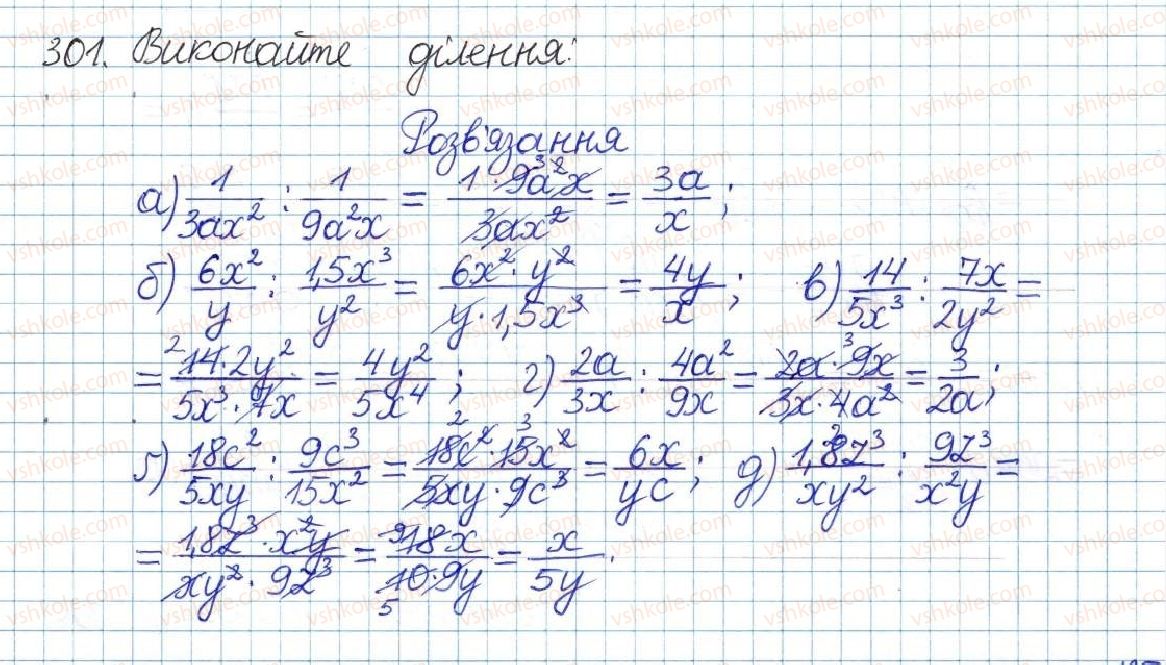 301. Виконайте ділення:
Розв'язання
а) 1/(3ax²) : 1/(9a²x) = (1 · 9a²x)/(3ax²) = 3a/x;
б) 6x²/y : 1,5x³/y² = (6x² · y²)/(y · 1,5x³) = 4y/x; в) 14/(5x³) : 7x/(2y²) =
= (14 · 2y²)/(5x³ · 7x) = 4y²/(5x⁴); г) 2a/(3x) : 4a²/(9x) = (2a · 9x)/(3x · 4a²) = 3/(2a);
ґ) 18c²/(5xy) : 9c³/(15x²) = (18c² · 15x²)/(5xy · 9c³) = 6x/(yc); д) 1,8z³/(xy²) : 9z³/(x²y) =
= (1,8z³ · x²y)/(xy² · 9z³) = 18x/(10 · 9y) = x/(5y).